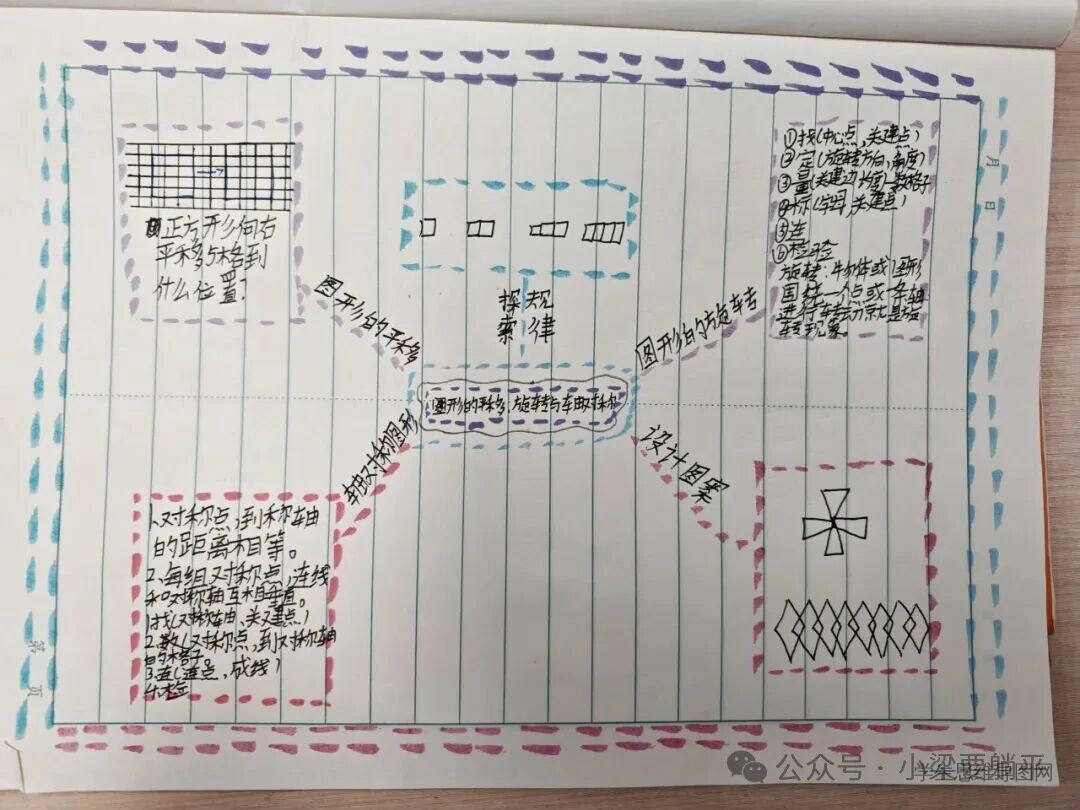 月
日
第
页
正方形向右
平移5格到
什么位置?
图形的平移
探规
索律
图形的平移、旋转与轴对称
①找(中心点,关建点)
②定(旋转方向,角度)
③量(关建边长度)数格子
④标(字母,关建点)
⑤连
⑥检验
旋转:物体或图形
围绕一个点或一条轴
进行转动就是旋
转现象。
图形的旋转
轴对称图形
1、对称点,到称轴
的距离相等。
2、每组对称点,连线
和对称轴互相垂直。
1、找(对称轴、关建点)
2、数(对称点,到对称轴
的格子
3、连(连点,成线)
4、检
设计图案
公众号·小梁要躺平
学生思维导图网